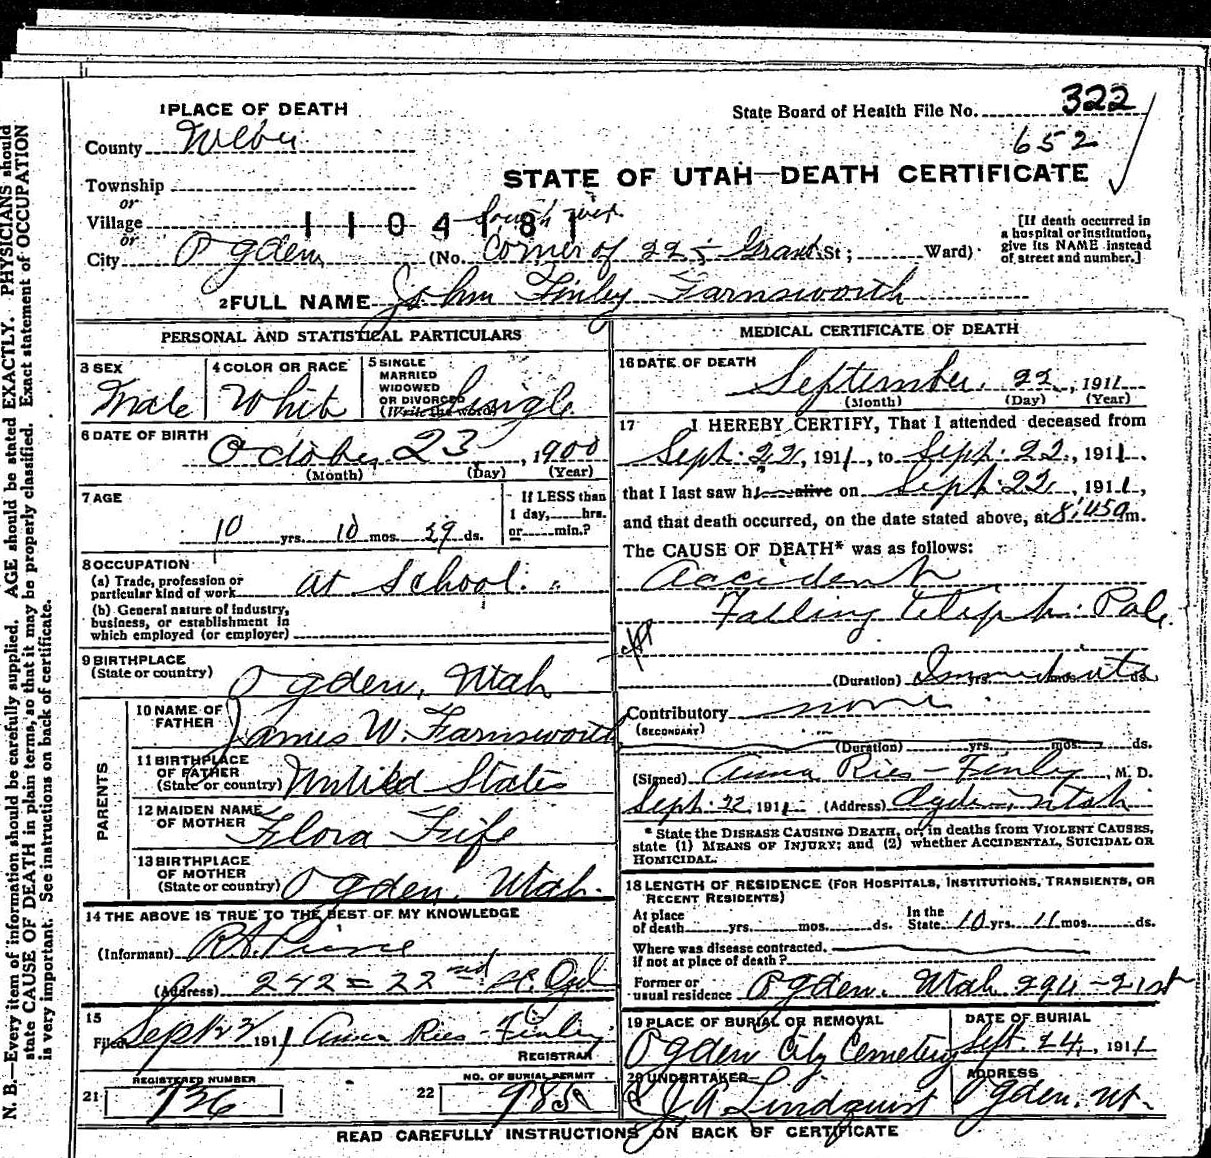 1 PLACE OF DEATH
State Board of Health File No. 322
652
County Weber
STATE OF UTAH—DEATH CERTIFICATE
Township
or
Village
1104181
or
City Ogden (No. Corner of 22 & Grant St; Ward)
[If death occurred in a hospital or institution, give its NAME instead of street and number.]
2 FULL NAME John Finley Farnsworth
PERSONAL AND STATISTICAL PARTICULARS
3 SEX Male
4 COLOR OR RACE White
5 SINGLE MARRIED WIDOWED OR DIVORCED (Write the word) Single
6 DATE OF BIRTH October 23, 1900
(Month) (Day) (Year)
7 AGE 10 yrs. 10 mos. 29 ds.
If LESS than 1 day, hrs. or min.?
8 OCCUPATION
(a) Trade, profession or particular kind of work at School
(b) General nature of industry, business, or establishment in which employed (or employer)
9 BIRTHPLACE (State or country) Ogden, Utah
PARENTS
10 NAME OF FATHER James W. Farnsworth
11 BIRTHPLACE OF FATHER (State or country) United States
12 MAIDEN NAME OF MOTHER Flora Fife
13 BIRTHPLACE OF MOTHER (State or country) Ogden, Utah.
14 THE ABOVE IS TRUE TO THE BEST OF MY KNOWLEDGE
(Informant)
(Address) 242 = 22nd St. Ogd
15 Filed Sept 22 1911 Anna Ries-Finley
REGISTRAR
21 REGISTERED NUMBER 736
22 NO. OF BURIAL PERMIT
MEDICAL CERTIFICATE OF DEATH
16 DATE OF DEATH September 22, 1911
(Month) (Day) (Year)
17 I HEREBY CERTIFY, That I attended deceased from
Sept. 22, 1911, to Sept. 22, 1911,
that I last saw h alive on Sept. 22, 1911,
and that death occurred, on the date stated above, at 8:45 a m.
The CAUSE OF DEATH* was as follows:
Accident
Falling Teleph. Pole.
(Duration) Immediate yrs. mos. ds.
Contributory none
(SECONDARY)
(Duration) yrs. mos. ds.
(Signed) Anna Ries-Finley, M. D.
Sept. 22 1911 (Address) Ogden, Utah
* State the DISEASE CAUSING DEATH, or, in deaths from VIOLENT CAUSES, state (1) MEANS OF INJURY; and (2) whether ACCIDENTAL, SUICIDAL OR HOMICIDAL.
18 LENGTH OF RESIDENCE (FOR HOSPITALS, INSTITUTIONS, TRANSIENTS, OR RECENT RESIDENTS)
At place of death yrs. mos. ds. In the State 10 yrs. 11 mos. ds.
Where was disease contracted, if not at place of death?
Former or usual residence Ogden, Utah 294-21st
19 PLACE OF BURIAL OR REMOVAL Ogden City Cemetery
DATE OF BURIAL Sept. 24, 1911
20 UNDERTAKER J A Lindquist
ADDRESS Ogden, Ut.
READ CAREFULLY INSTRUCTIONS ON BACK OF CERTIFICATE
N. B.—Every item of information should be carefully supplied. AGE should be stated EXACTLY. PHYSICIANS should
state CAUSE OF DEATH in plain terms, so that it may be properly classified. Exact statement of OCCUPATION
is very important. See instructions on back of certificate.